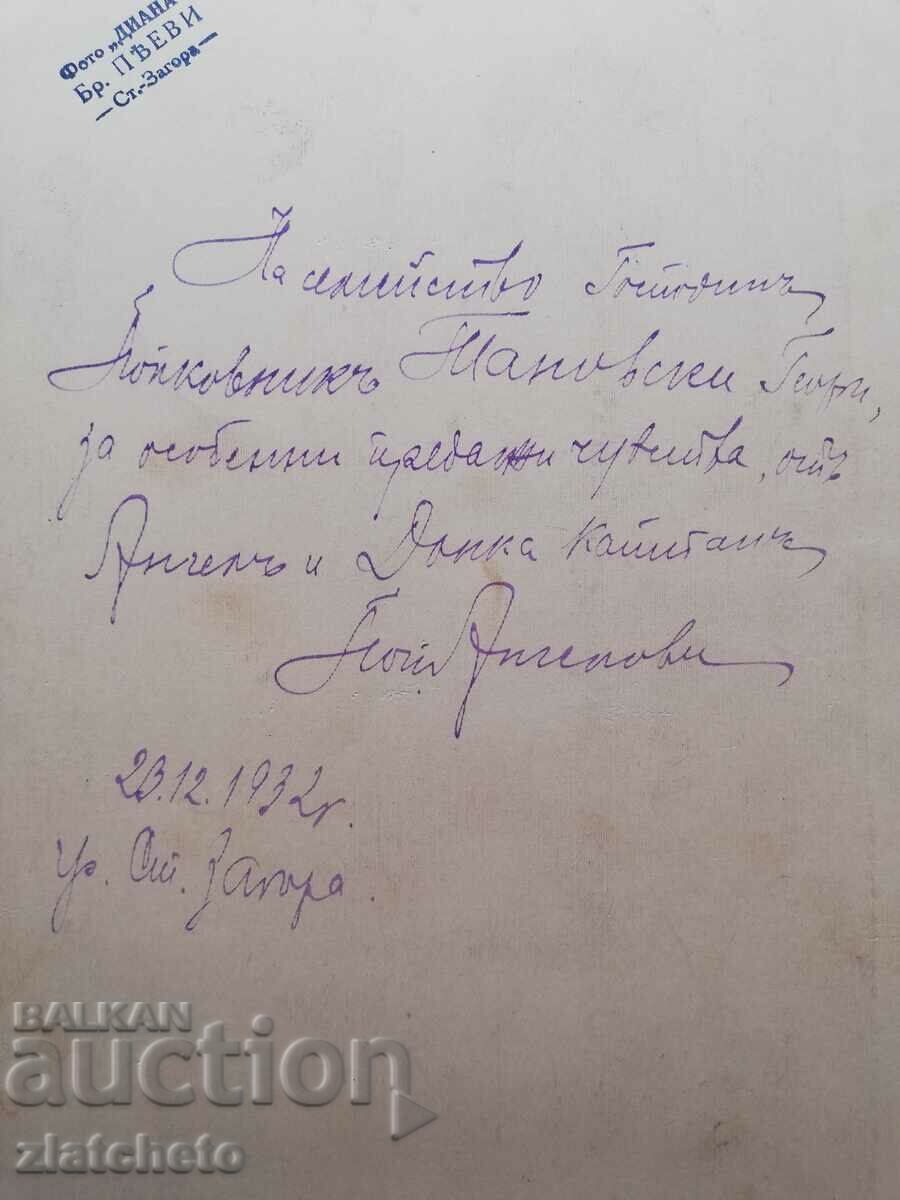 Фото „ДИАНА
Бр. ПѢЕВИ
—Ст.-Загора—
На семейство Господинъ
Полковникъ Тановски Георги,
за особенни предани чувства, отъ
Ангелъ и Донка Капитанъ
Поп Ангелови
23.12.1932 г.
гр. Ст. Загора.
BALKAN
auction
zlatcheto